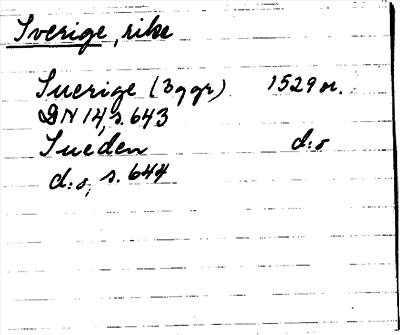 Sverige, rike
Suerige (3 ggr) 1529 or.
DN 14, s. 643
Sueden d:o
d:o, s. 644